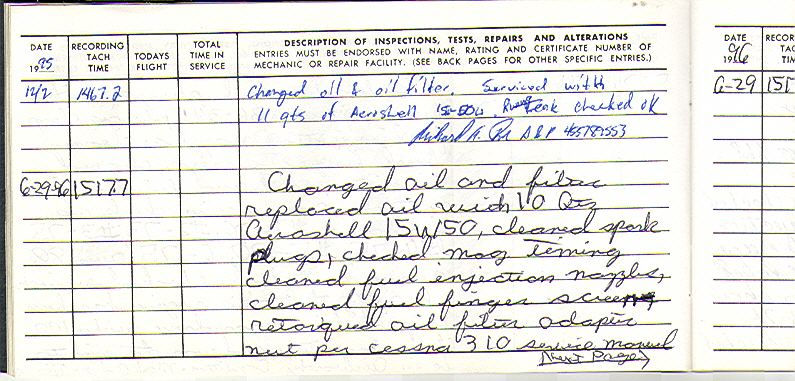 DATE
1995
RECORDING
TACH
TIME
TODAYS
FLIGHT
TOTAL
TIME IN
SERVICE
DESCRIPTION OF INSPECTIONS, TESTS, REPAIRS AND ALTERATIONS
ENTRIES MUST BE ENDORSED WITH NAME, RATING AND CERTIFICATE NUMBER OF
MECHANIC OR REPAIR FACILITY. (SEE BACK PAGES FOR OTHER SPECIFIC ENTRIES.)
12/2 1467.2 Changed oil & oil filter. Serviced with
11 qts of Aeroshell 15-50W. leak checked ok
Richard A. A&P
6-29-96 1517.7 Changed oil and filter
replaced oil with 10 Qts
Aeroshell 15W50, cleaned spark
plugs, checked mag timing
cleaned fuel injection nozzles,
cleaned fuel finger screen
retorqued oil filter adapter
nut per cessna 310 service manual
(Next Page)
DATE
1996
RECOR
TA
TIM
6-29 151